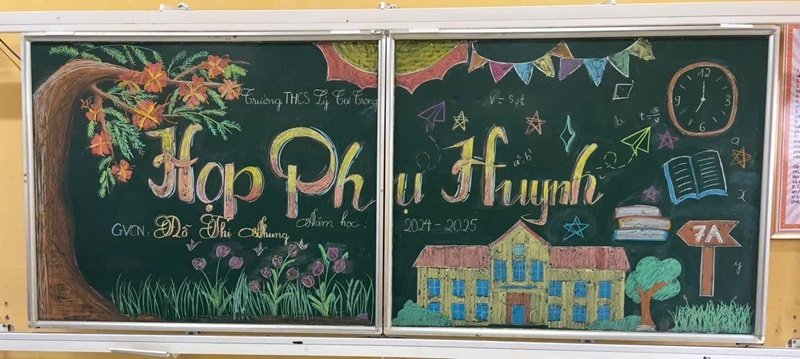 Trường THCS Lý Tự Trọng
Họp Phụ Huynh
GVCN: Đỗ Thị Nhung
Năm học: 2024-2025
V = s.t
a² b²
b
t = s/v
12
3
6
9
a
x
y
7A